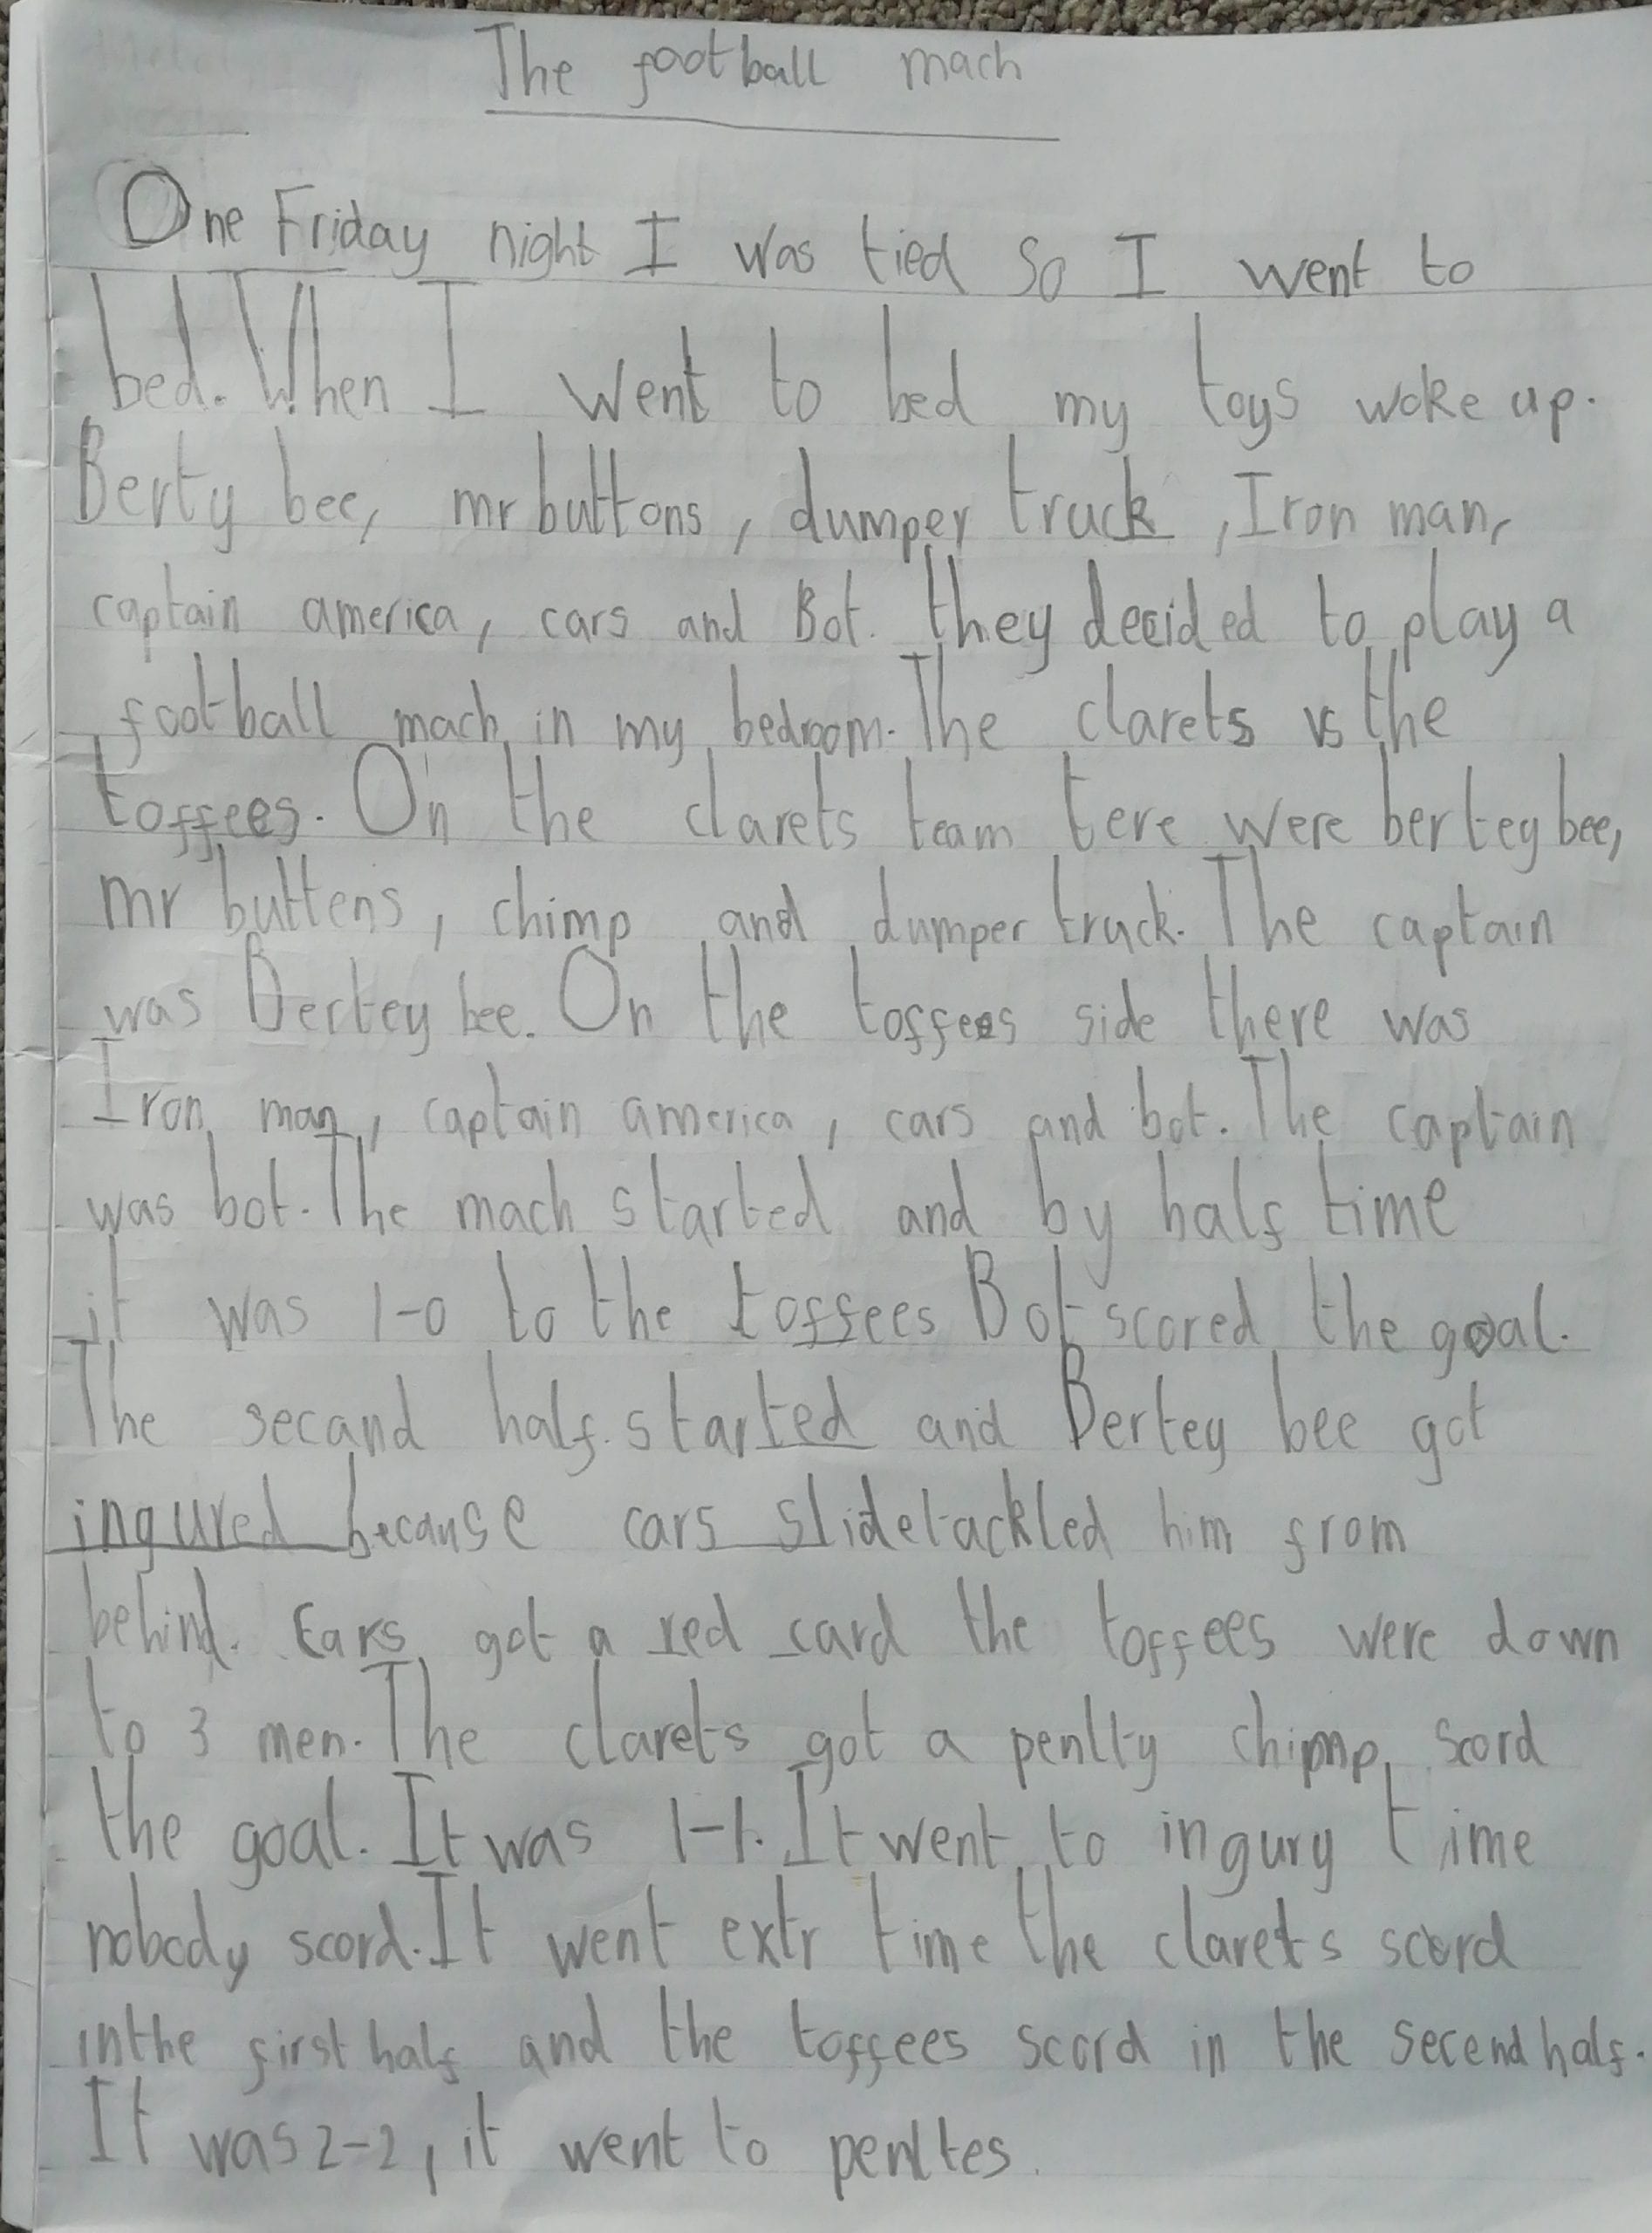 The football mach
One Friday night I was tied so I went to
bed. When I went to bed my toys woke up.
Berty bee, mr buttons, dumper truck, Iron man,
captain america, cars and Bot. they decided to play a
football mach in my bedroom. The clarets vs the
toffees. On the clarets team tere were bertey bee,
mr buttens, chimp and dumper truck. The captain
was Bertey bee. On the toffees side there was
Iron man, captain america, cars and bot. The captain
was bot. The mach started and by half time
it was 1-0 to the toffees Bot scored the goal.
The secand half started and Bertey bee got
ingured because cars slidetackled him from
behind. Cars got a red card the toffees were down
to 3 men. The clarets got a penlty chimp scord
the goal. It was 1-1. It went to ingury time
nobody scord. It went extr time the clarets scord
in the first half and the toffees scord in the secend half.
It was 2-2, it went to penltes.